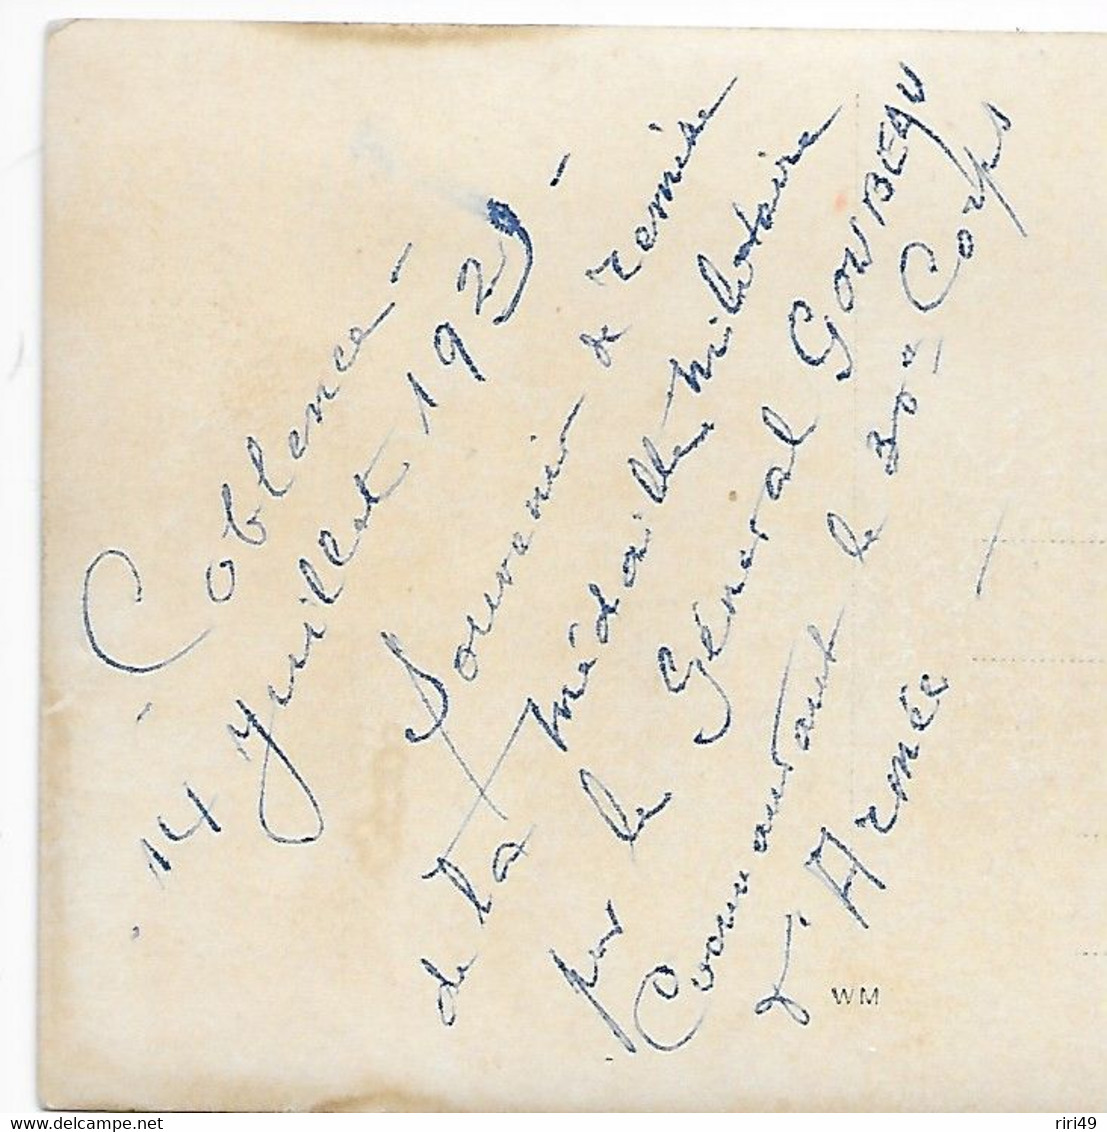 Coblence -
- 14 Juillet 192 -
Souvenir de remise
de la Médaille Militaire
par le Général GOUBEAU
Commandant le 30e Corps
d'Armée -
WM
www.delcampe.net
riri49